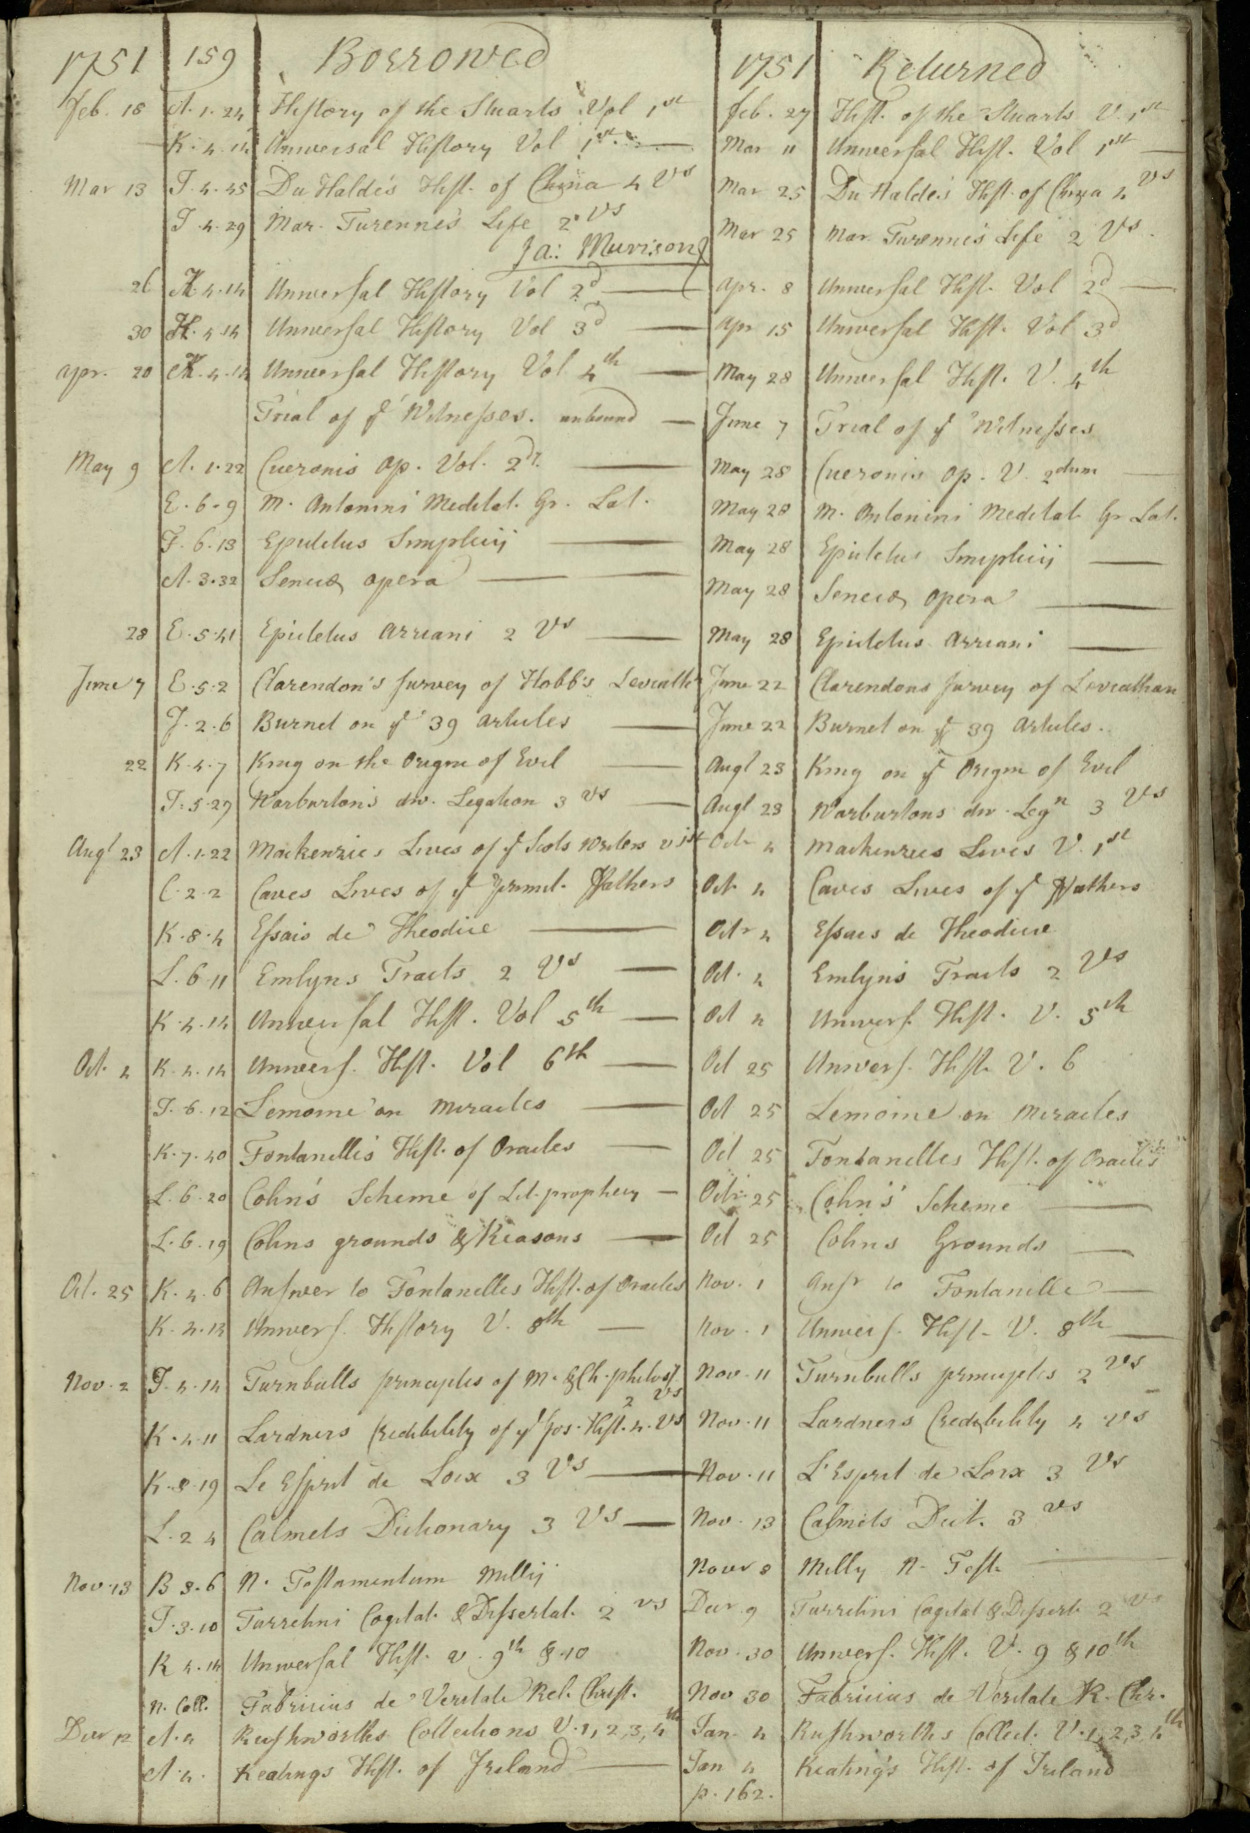 1751 159 Borrowed 1751 Returned
Feb. 18 A.1.24 History of the Stuarts Vol 1st feb. 27 Hist. of the Stuarts V. 1st
K.4.14 Universal History Vol 1st Mar 11 Universal Hist. Vol 1st
Mar 13 I.4.45 Du Halde's Hist. of China 4 Vs Mar 25 Du Halde's Hist. of China 4 Vs
I.4.29 Mar. Turenne's Life 2 Vs Mar 25 Mar. Turenne's Life 2 Vs.
Ja: Murison
26 K.4.14 Universal History Vol 2d Apr. 8 Universal Hist. Vol 2d
30 K.4.14 Universal History Vol 3d Apr 15 Universal Hist. Vol 3d
Apr. 20 K.4.14 Universal History Vol 4th May 28 Universal Hist. V. 4th
Trial of ye Witnesses. unbound June 7 Trial of ye Witnesses
May 9 A.1.22 Ciceronis Op. Vol. 2d. May 28 Ciceronis Op. V. 2dum
E.6.9 M. Antonini Meditat. Gr. Lat. May 28 M. Antonini Meditat. Gr Lat.
I.6.13 Epictetus Simplicij May 28 Epictetus Simplicij
A.3.32 Senecæ opera May 28 Senecæ Opera
28 E.5.41 Epictetus Arriani 2 Vs May 28 Epictetus Arriani
June 7 E.5.2 Clarendon's survey of Hobb's Leviath June 22 Clarendons survey of Leviathan
I.2.6 Burnet on ye 39 Articles June 22 Burnet on ye 39 Articles.
22 K.4.7 King on the Origin of Evil Augt 23 King on ye Origin of Evil
I.5.27 Warburton's div. Legation 3 Vs Augt 23 Warburtons div. Legn 3 Vs
Augt 23 A.1.22 Mackenzies Lives of ye Scots Writers v 1st Octr 4 Mackenzies Lives V. 1st
C.2.2 Caves Lives of ye primit. Ffathers Oct. 4 Caves Lives of ye Ffathers
K.8.4 Essais de Theodice Octr 4 Essais de Theodice
L.6.11 Emlyns Tracts 2 Vs Oct. 4 Emlyns Tracts 2 Vs
K.4.14 Universal Hist. Vol 5th Oct 4 Univers. Hist. V. 5th
Oct. 4 K.4.14 Univers. Hist. Vol 6th Oct 25 Univers. Hist. V. 6
I.6.12 Lemoine on Miracles Oct 25 Lemoine on Miracles
K.7.40 Fontanelle's Hist. of Oracles Oct 25 Fontanelles Hist. of Oracles
L.6.20 Colin's Scheme of Lit. prophecy Octr. 25 Colin's Scheme
L.6.19 Colins grounds & Reasons Oct 25 Colins Grounds
Oct. 25 K.4.6 Answer to Fontanelles Hist. of Oracles Nov. 1 Ansr to Fontanelle
K.4.14 Univers. History V. 8th Nov. 1 Univers. Hist. V. 8th
Nov. 2 I.4.14 Turnbulls principles of M. & Ch. philosy. 2 Vs Nov. 11 Turnbulls principles 2 Vs
K.4.11 Lardners Credibility of ye Gos. Hist. 4 Vs Nov. 11 Lardners Credibility 4 Vs
K.8.19 Le Esprit de Loix 3 Vs Nov. 11 L'Esprit de Loix 3 Vs
L.2.4 Calmets Dictionary 3 Vs Nov. 13 Calmets Dict. 3 Vs
Nov. 13 B 3.6 N. Testamentum Millij Novr 8 Milly N. Test.
I.3.10 Turretini Cogitat. & Dissertat. 2 vs Decr 9 Turretini Cogitat & Dissert. 2 Vs
K 4.14 Universal Hist. v. 9th & 10 Nov. 30 Univers. Hist. V. 9 & 10th
N. Coll. Fabricius de Veritate Rel. Christ. Nov 30 Fabricius de Veritate R. Chr.
Decr 12 A.4 Rushworths Collections V. 1, 2, 3, 4th Jan. 4 Rushworths Collect. V. 1, 2, 3, 4th
A.4. Keatings Hist. of Ireland Jan 4 Keating's Hist. of Ireland
p. 162.